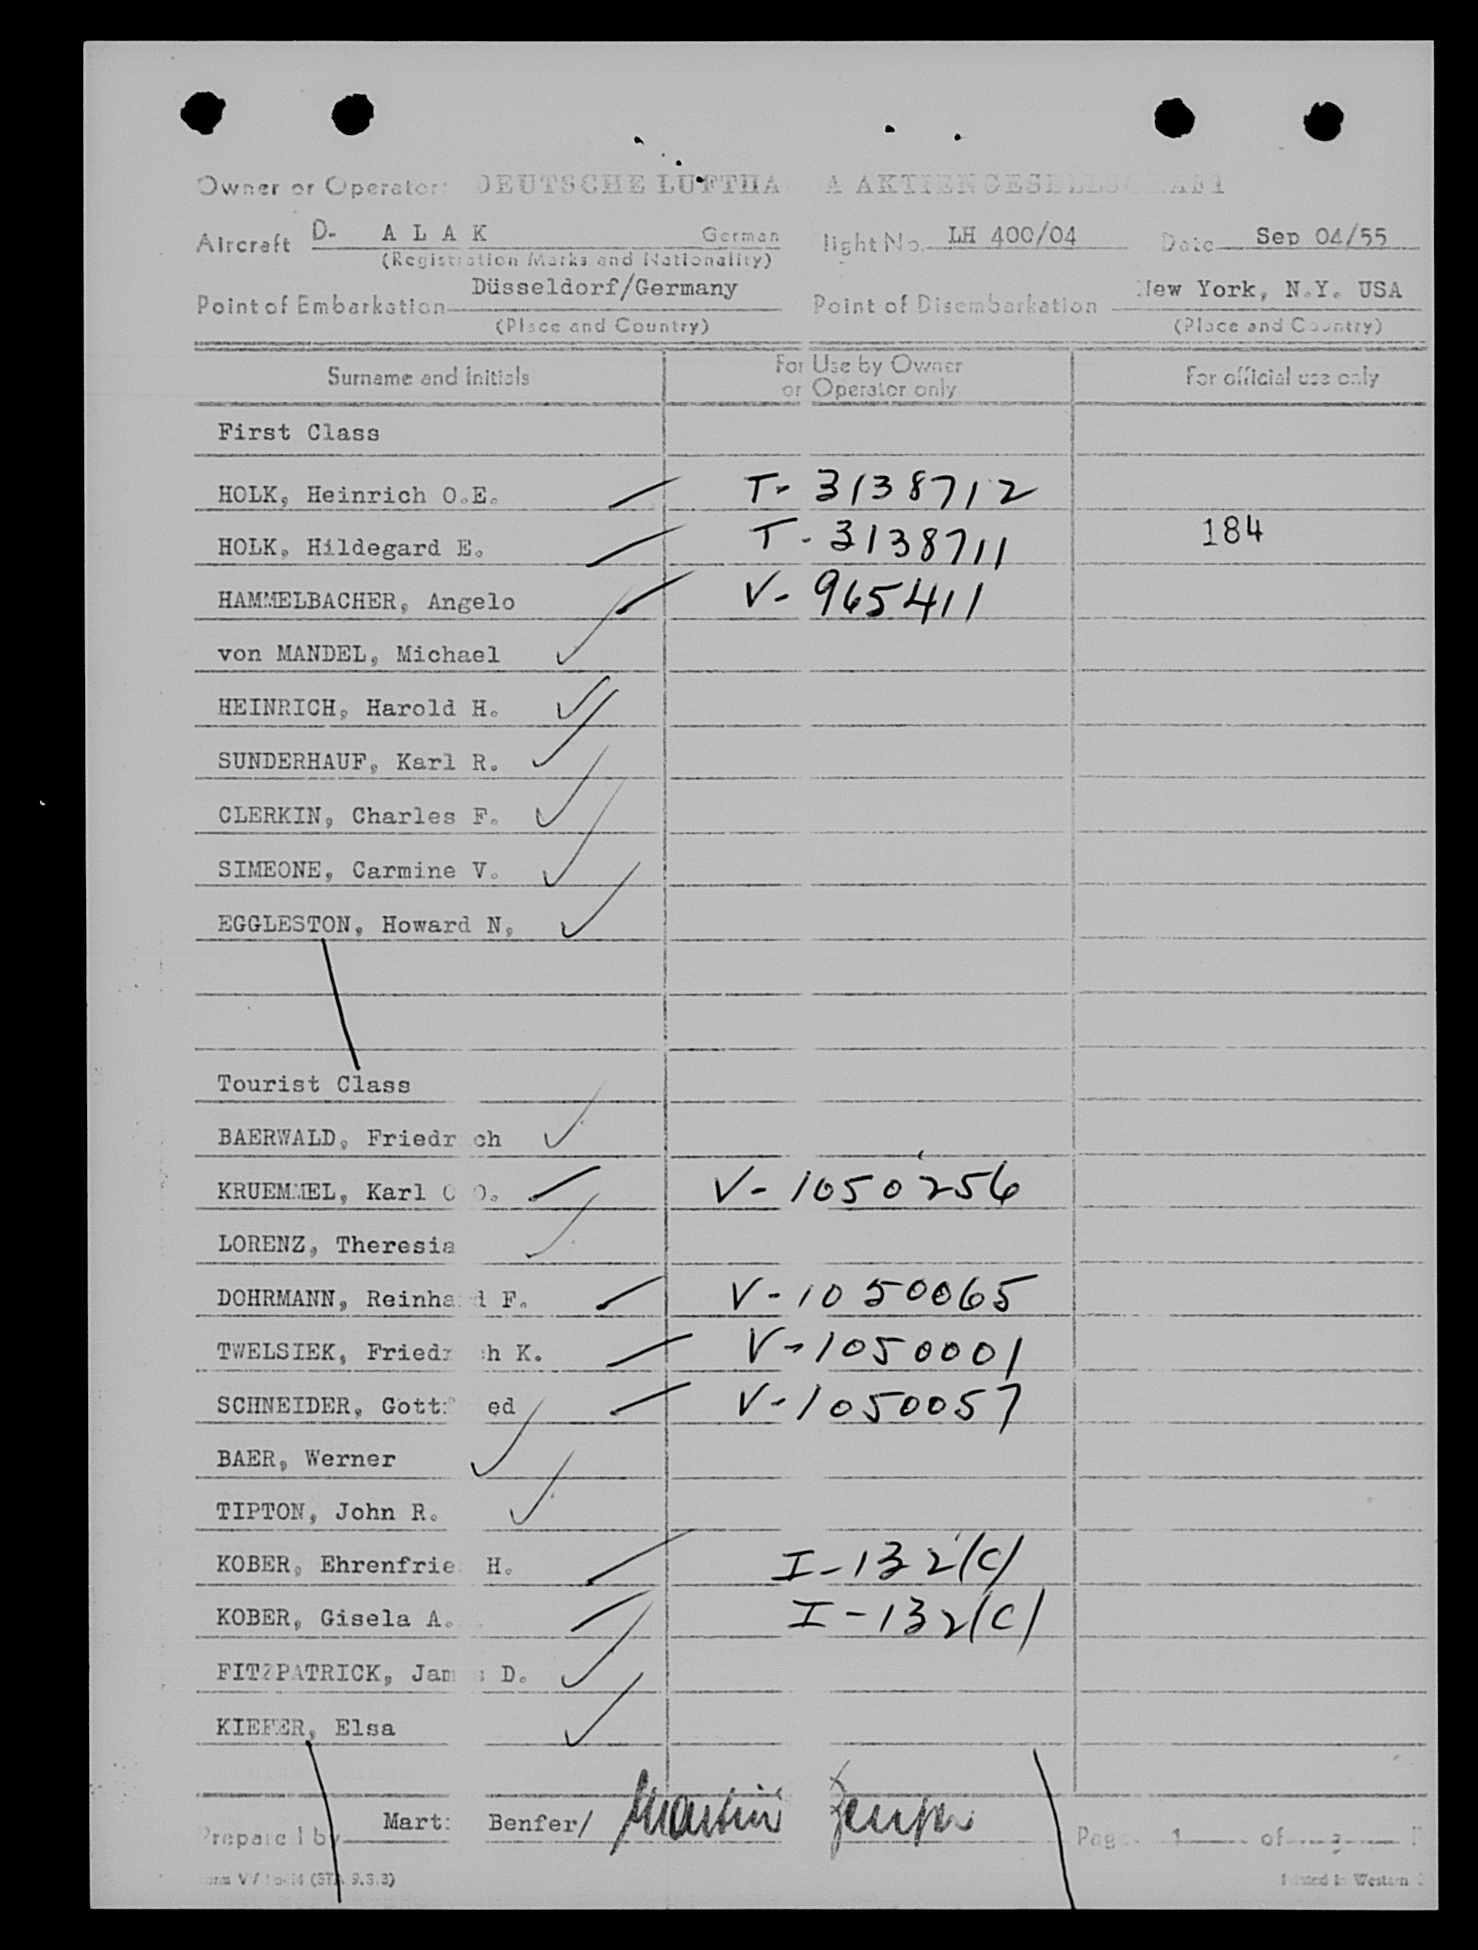 Owner or Operator: DEUTSCHE LUFTHA A AKTIENGESELLSCHAFT
Aircraft D- A L A K German light No. LH 400/04 Date Sep 04/55
(Registration Marks and Nationality)
Point of Embarkation Düsseldorf/Germany Point of Disembarkation New York, N.Y. USA
(Place and Country) (Place and Country)
Surname and Initials For Use by Owner or Operator only For official use only
First Class
HOLK, Heinrich O.E. T- 3138712
HOLK, Hildegard E. T- 3138711 184
HAMMELBACHER, Angelo V- 965411
von MANDEL, Michael
HEINRICH, Harold H.
SUNDERHAUF, Karl R.
CLERKIN, Charles F.
SIMEONE, Carmine V.
EGGLESTON, Howard N,
Tourist Class
BAERWALD, Friedr ch
KRUEMMEL, Karl O O. V- 1050256
LORENZ, Theresia
DOHRMANN, Reinha d F. V- 1050065
TWELSIEK, Friedr h K. V- 1050001
SCHNEIDER, Gottf ed V- 1050057
BAER, Werner
TIPTON, John R.
KOBER, Ehrenfrie H. I-132(C)
KOBER, Gisela A. I-132(C)
FITZPATRICK, Jam s D.
KIEFER, Elsa
Prepared by Mart Benfer/ Martin Benfer Page 1 of 3
(STA 9.3.3) Printed in Western